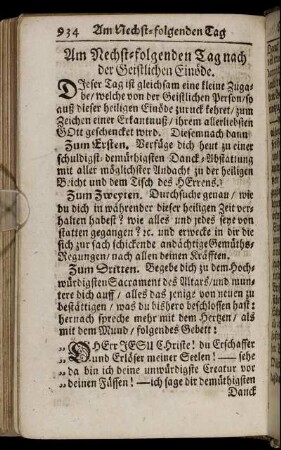 934 Am Nechst-folgenden Tag
Am Nechst-folgenden Tag nach
der Geistlichen Einöde.
DIeser Tag ist gleichsam eine kleine Zuga-
be/ welche von der Geistlichen Person/ so
auß dieser heiligen Einöde zuruck kehret/ zum
Zeichen einer Erkantnuß/ ihrem allerliebsten
GOtt geschencket wird. Diesemnach dann
Zum Ersten. Verfüge dich heut zu einer
schuldigst- demüthigsten Danck-Abstattung
mit aller möglichster Andacht zu der heiligen
Beicht und dem Tisch des HErrens.
Zum Zweyten. Durchsuche genau/ wie
du dich in währender dieser heiligen Zeit ver-
halten habest? wie alles und jedes seye von
statten gegangen? ꝛc. und erwecke in dir die
sich zur sach schickende andächtige Gemüths-
Regungen/ nach allen deinen Kräfften.
Zum Dritten. Begebe dich zu dem Hoch-
würdigsten Sacrament des Altars/ und mun-
tere dich auff/ alles das jenige von neuen zu
bestättigen/ was du bishero beschlossen hast:
hernach spreche mehr mit dem Hertzen/ als
mit dem Mund/ folgendes Gebett:
„ O HErr JESU Christe! du Erschaffer
„ und Erlöser meiner Seelen! — sehe
„ da bin ich deine unwürdigste Creatur vor
„ deinen Füssen! — ich sage dir demüthigsten
Danck